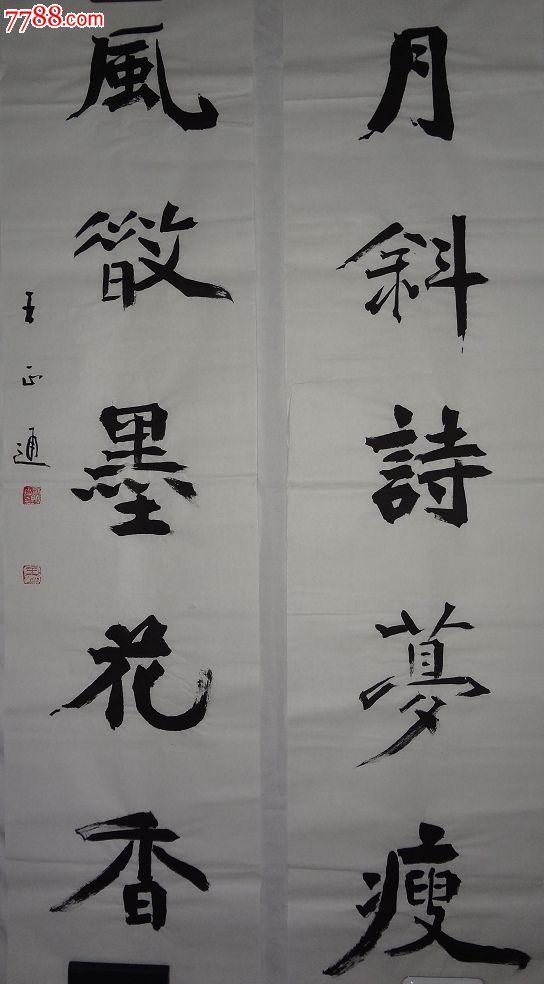 7788.com
月斜詩夢瘦
風散墨花香
王正通